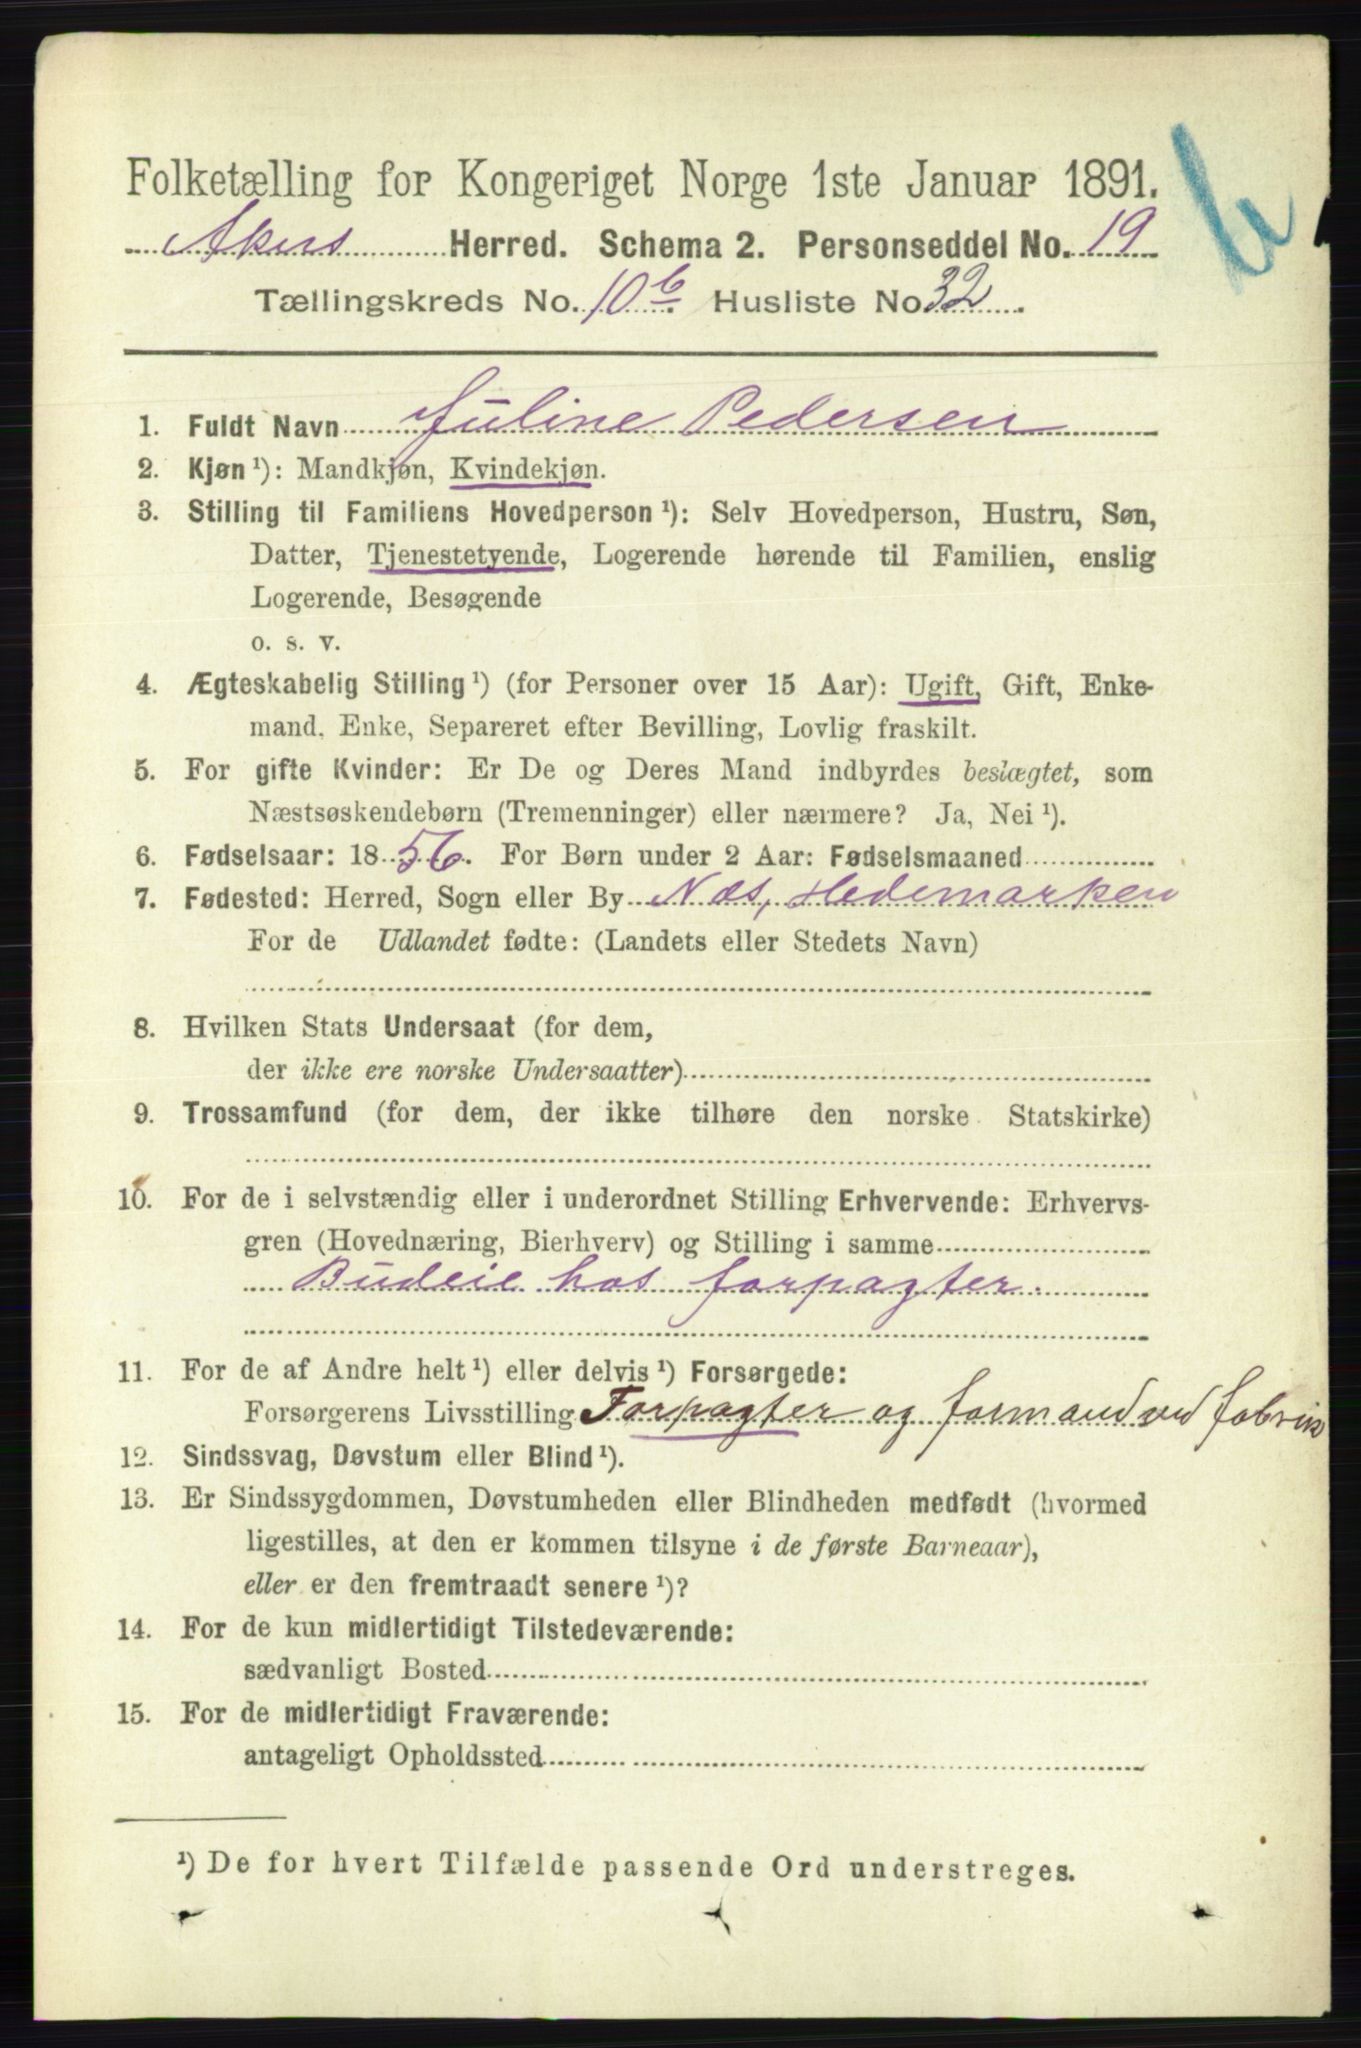 Folketælling for Kongeriget Norge 1ste Januar 1891.
Akers Herred. Schema 2. Personseddel No. 19
Tællingskreds No. 10b. Husliste No 32.
1. Fuldt Navn Juline Pedersen
2. Kjøn¹): Mandkjøn, Kvindekjøn.
3. Stilling til Familiens Hovedperson¹): Selv Hovedperson, Hustru, Søn,
Datter, Tjenestetyende, Logerende hørende til Familien, enslig
Logerende, Besøgende
o. s. v.
4. Ægteskabelig Stilling¹) (for Personer over 15 Aar): Ugift, Gift, Enke-
mand, Enke, Separeret efter Bevilling, Lovlig fraskilt.
5. For gifte Kvinder: Er De og Deres Mand indbyrdes beslægtet, som
Næstsøskendebørn (Tremenninger) eller nærmere? Ja, Nei¹).
6. Fødselsaar: 1856. For Børn under 2 Aar: Fødselsmaaned
7. Fødested: Herred, Sogn eller By Næs, Hedemarken
For de Udlandet fødte: (Landets eller Stedets Navn)
8. Hvilken Stats Undersaat (for dem,
der ikke ere norske Undersaatter)
9. Trossamfund (for dem, der ikke tilhøre den norske Statskirke)
10. For de i selvstændig eller i underordnet Stilling Erhvervende: Erhvervs-
gren (Hovednæring, Bierhverv) og Stilling i samme
Budeie hos forpagter.
11. For de af Andre helt¹) eller delvis¹) Forsørgede:
Forsørgerens Livsstilling Forpagter og formand ved fabrik
12. Sindssvag, Døvstum eller Blind¹).
13. Er Sindssygdommen, Døvstumheden eller Blindheden medfødt (hvormed
ligestilles, at den er kommen tilsyne i de første Barneaar),
eller er den fremtraadt senere¹)?
14. For de kun midlertidigt Tilstedeværende:
sædvanligt Bosted
15. For de midlertidigt Fraværende:
antageligt Opholdssted
¹) De for hvert Tilfælde passende Ord understreges.